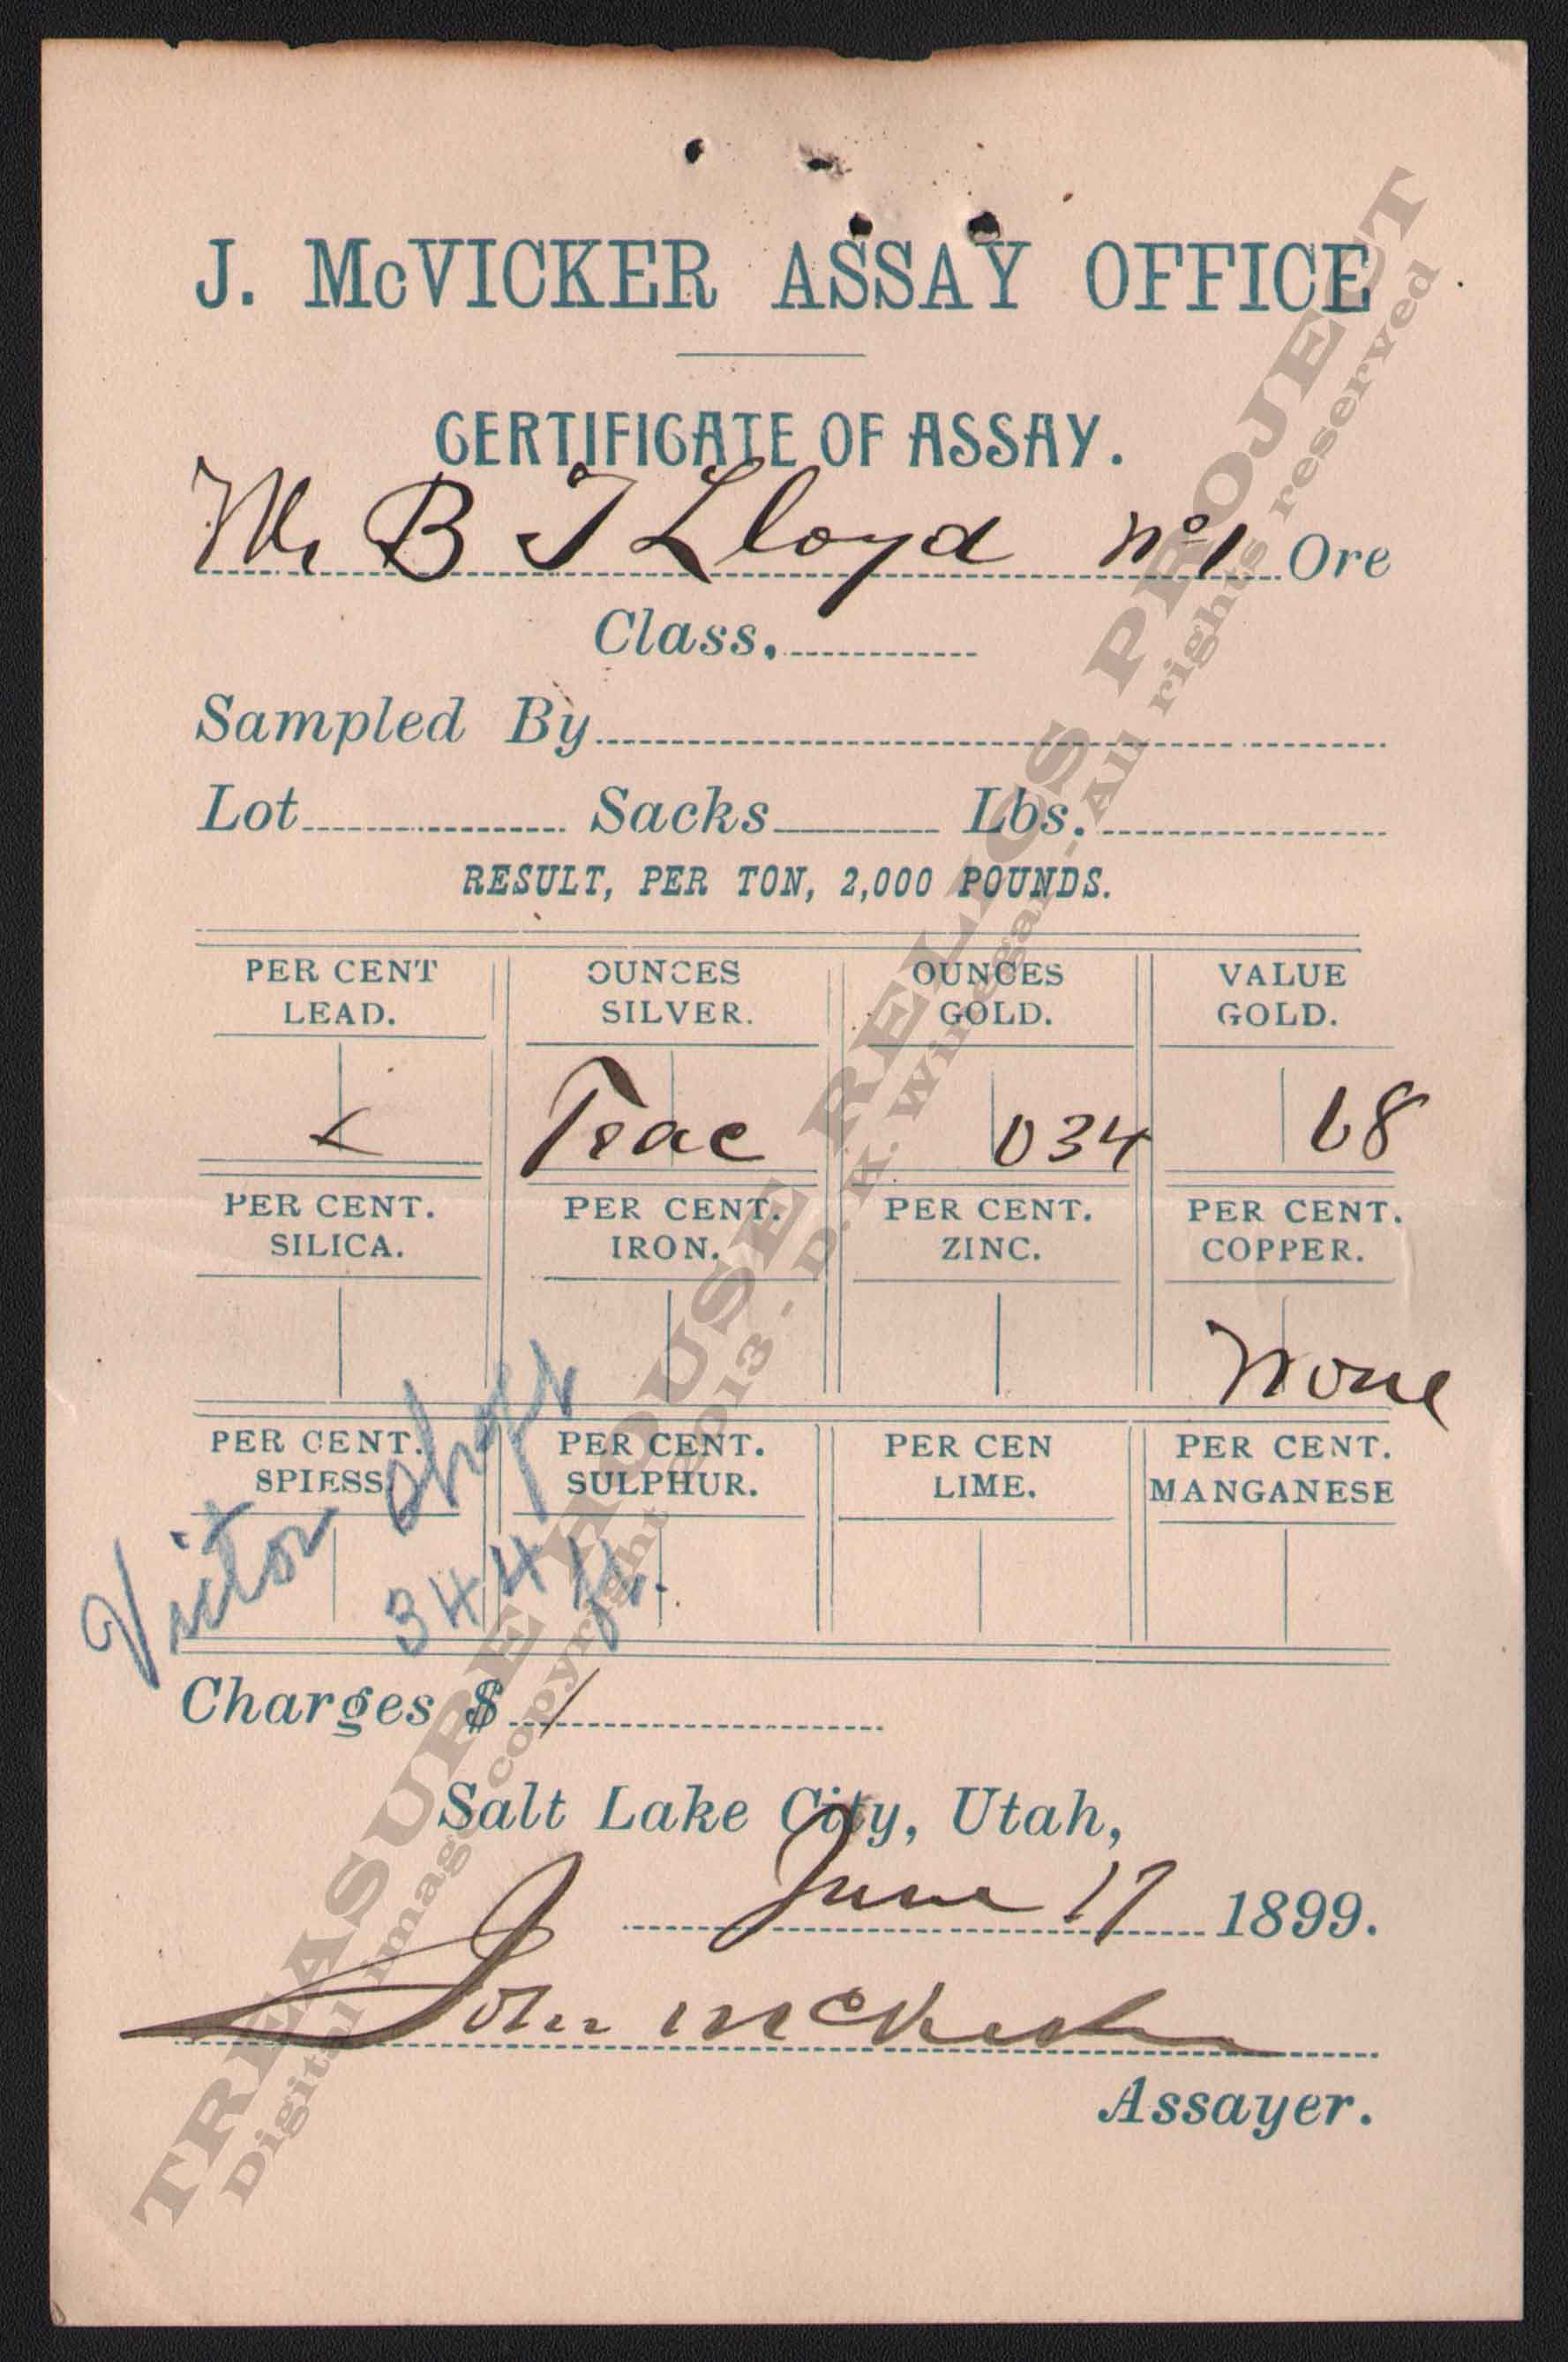 J. McVICKER ASSAY OFFICE
CERTIFICATE OF ASSAY.
Mr B T Lloyd No 1 Ore
Class,
Sampled By
Lot Sacks Lbs.
RESULT, PER TON, 2,000 POUNDS.
PER CENT LEAD. OUNCES SILVER. OUNCES GOLD. VALUE GOLD.
Trac 034 68
PER CENT. SILICA. PER CENT. IRON. PER CENT. ZINC. PER CENT. COPPER.
None
PER CENT. SPIESS PER CENT. SULPHUR. PER CEN LIME. PER CENT. MANGANESE
Victor shaft
344 ft.
Charges $ 1
Salt Lake City, Utah,
June 17 1899.
John McVicker
Assayer.
TREASURE HOUSE RELICS PROJECT
Digital image copyright 2013 - D. K. Winegar - All rights reserved